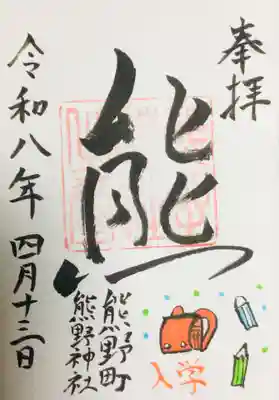 奉拝
熊
入学
熊野町
熊野神社
令和八年 四月十三日